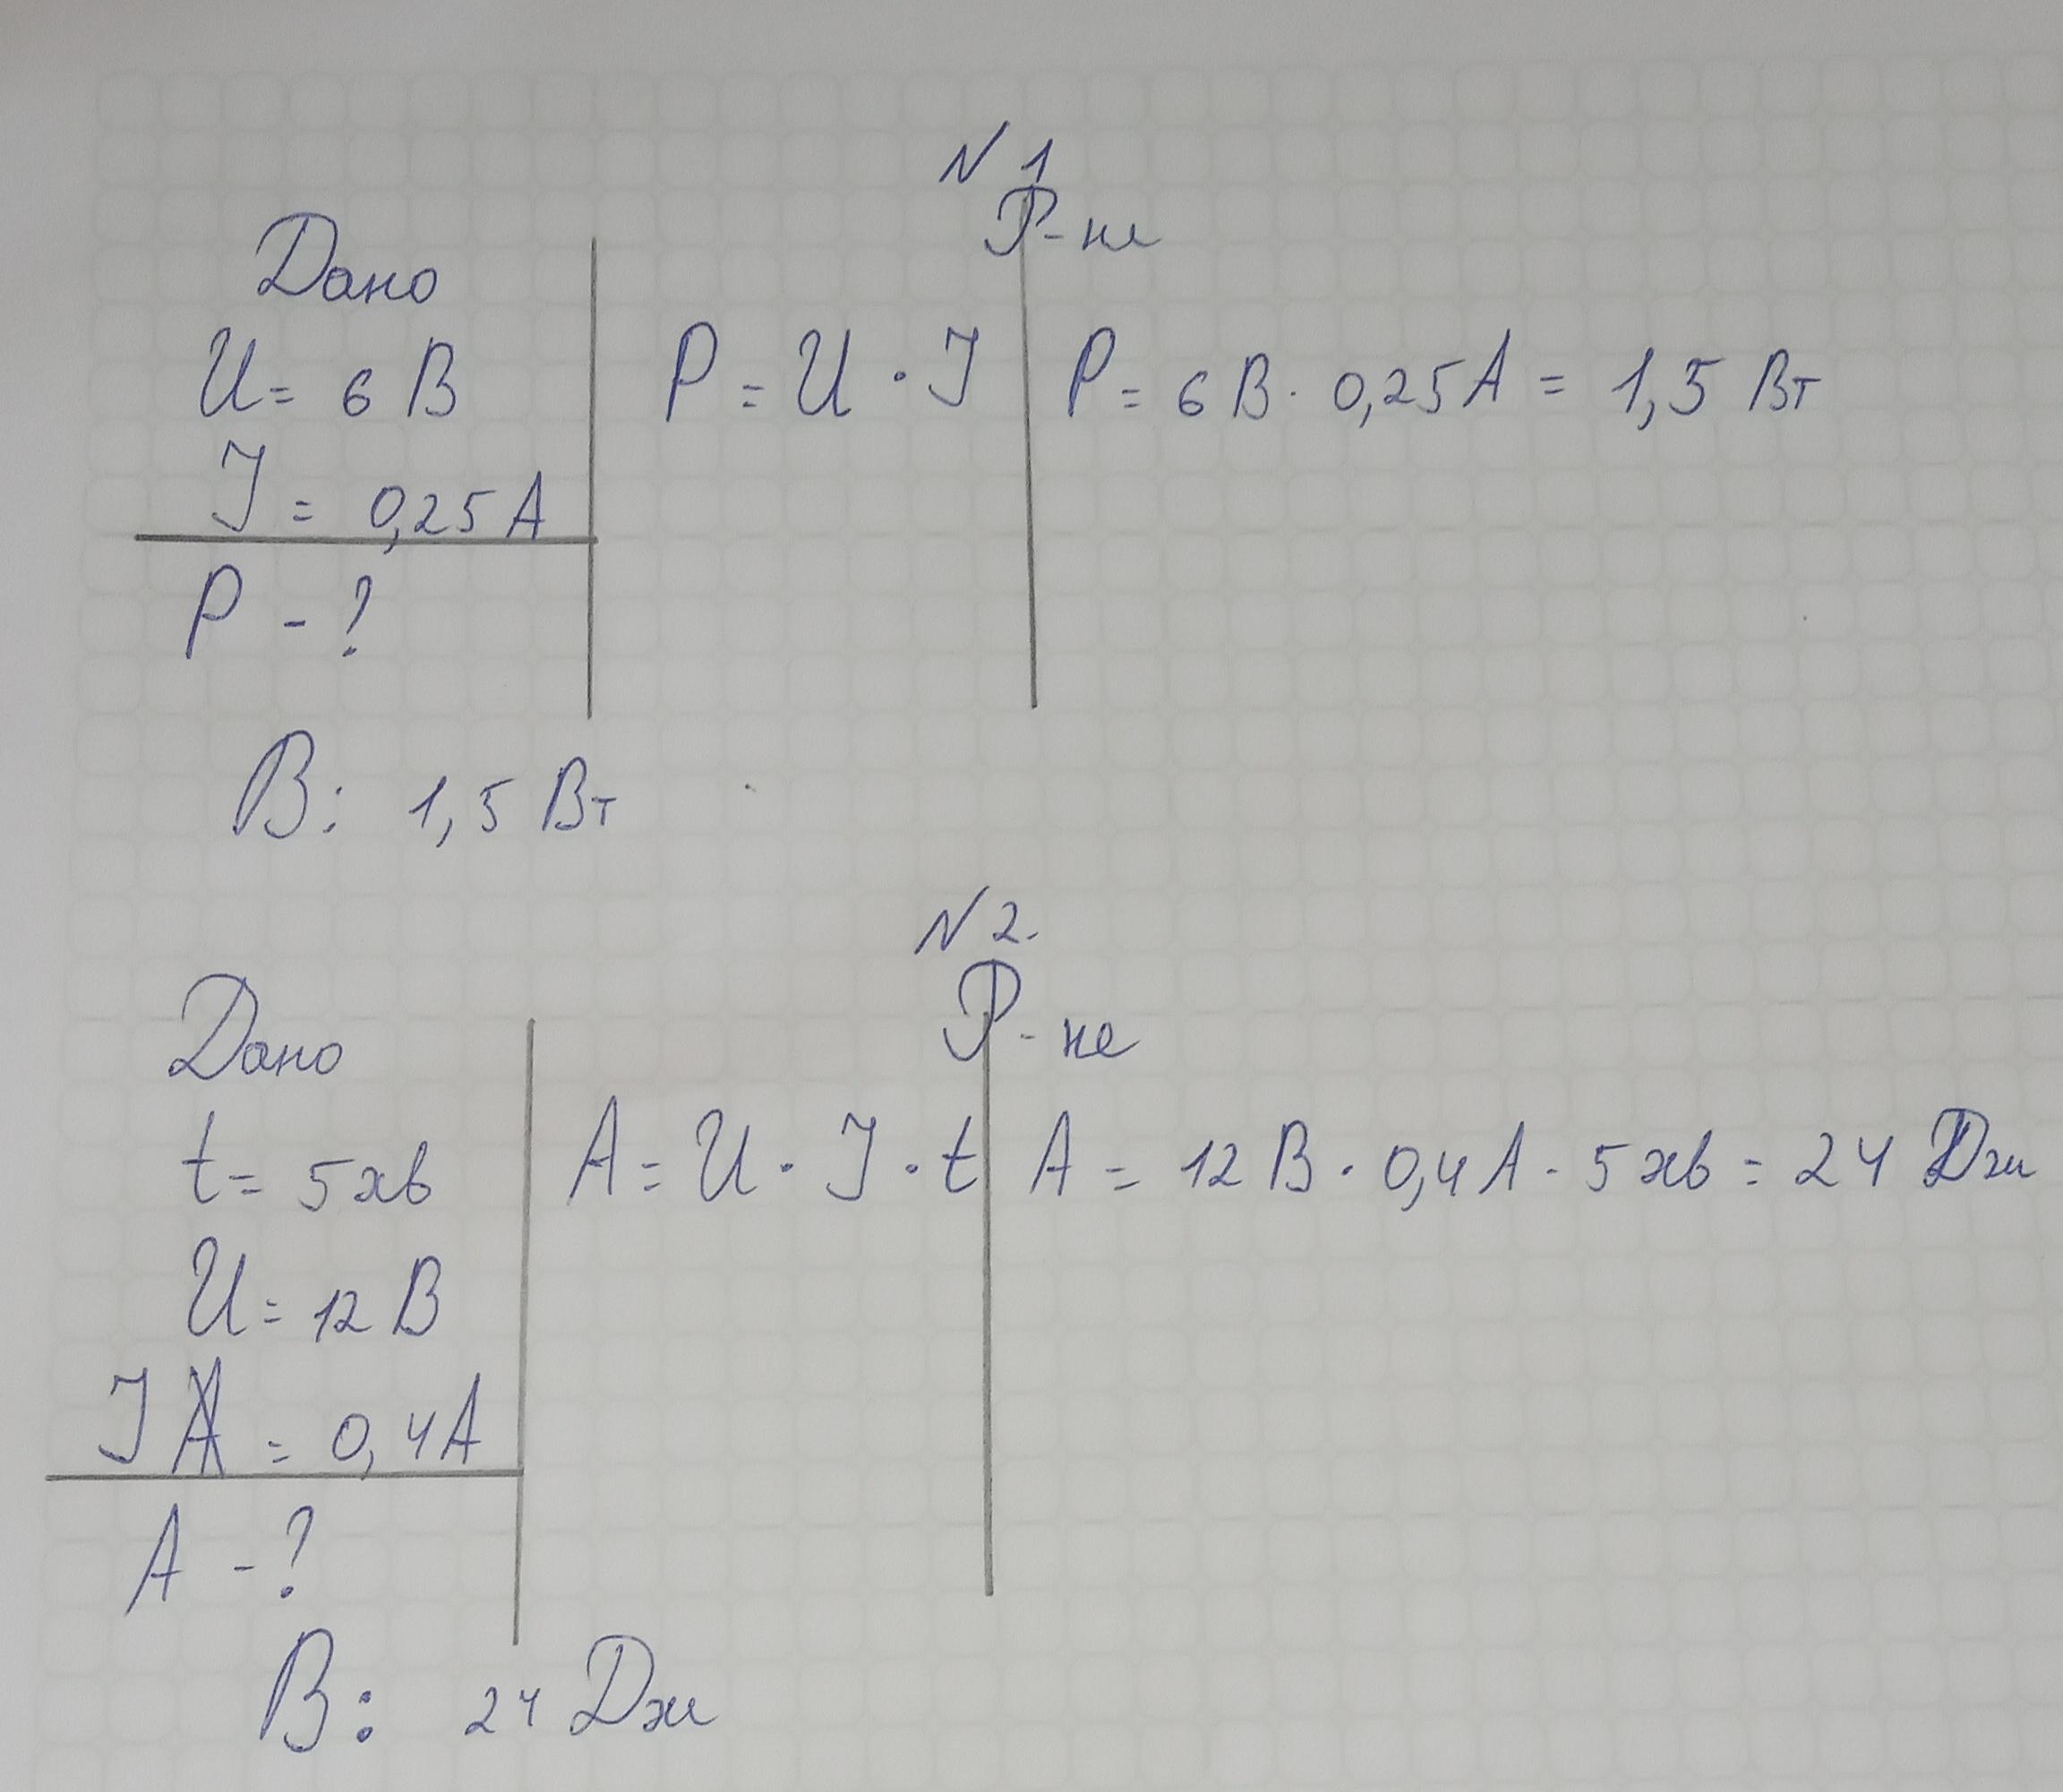 N 1
Р-не
Дано
U = 6 В
I = 0,25 А
P - ?
P = U · I
P = 6 В · 0,25 А = 1,5 Вт
В: 1,5 Вт
N 2.
Р-не
Дано
t = 5 хв
U = 12 В
I = 0,4 А
A - ?
A = U · I · t
A = 12 В · 0,4 А · 5 хв = 24 Дж
В: 24 Дж